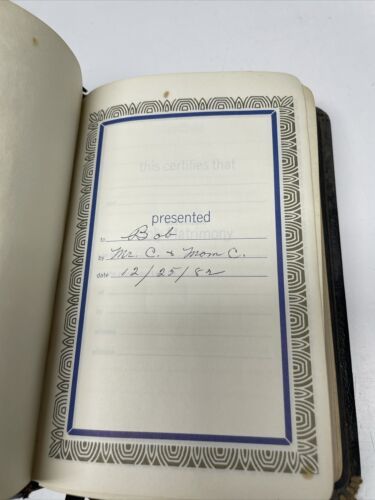 this certifies that
presented
to Bob
Matrimony
by Mr. C. & Mom C.
date 12/25/82